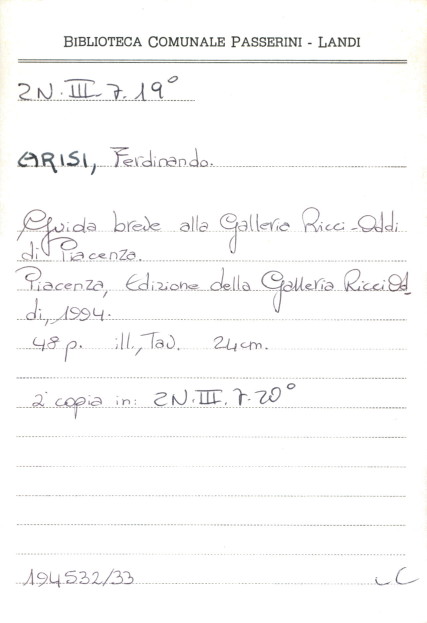 BIBLIOTECA COMUNALE PASSERINI - LANDI
2N.III.7.19°
ARISI, Ferdinando.
Guida breve alla Galleria Ricci-Oddi
di Piacenza.
Piacenza, Edizione della Galleria Ricci Od
di, 1994.
48 p. ill., Tav. 24cm.
2ª copia in: 2N.III.7.20°
194532/33
C